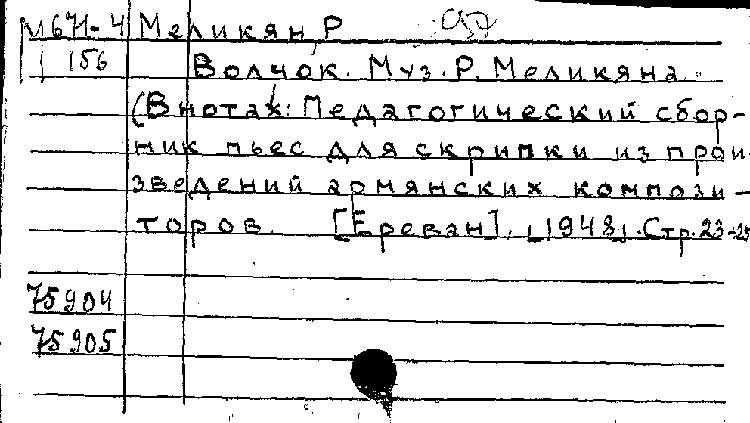 М671-4 Меликян, Р
156 Волчок. Муз. Р. Меликяна.
(В нотах: Педагогический сбор-
ник пьес для скрипки из прои
зведений армянских компози-
торов. [Ереван], 1948. Стр. 23-25
75904
75905